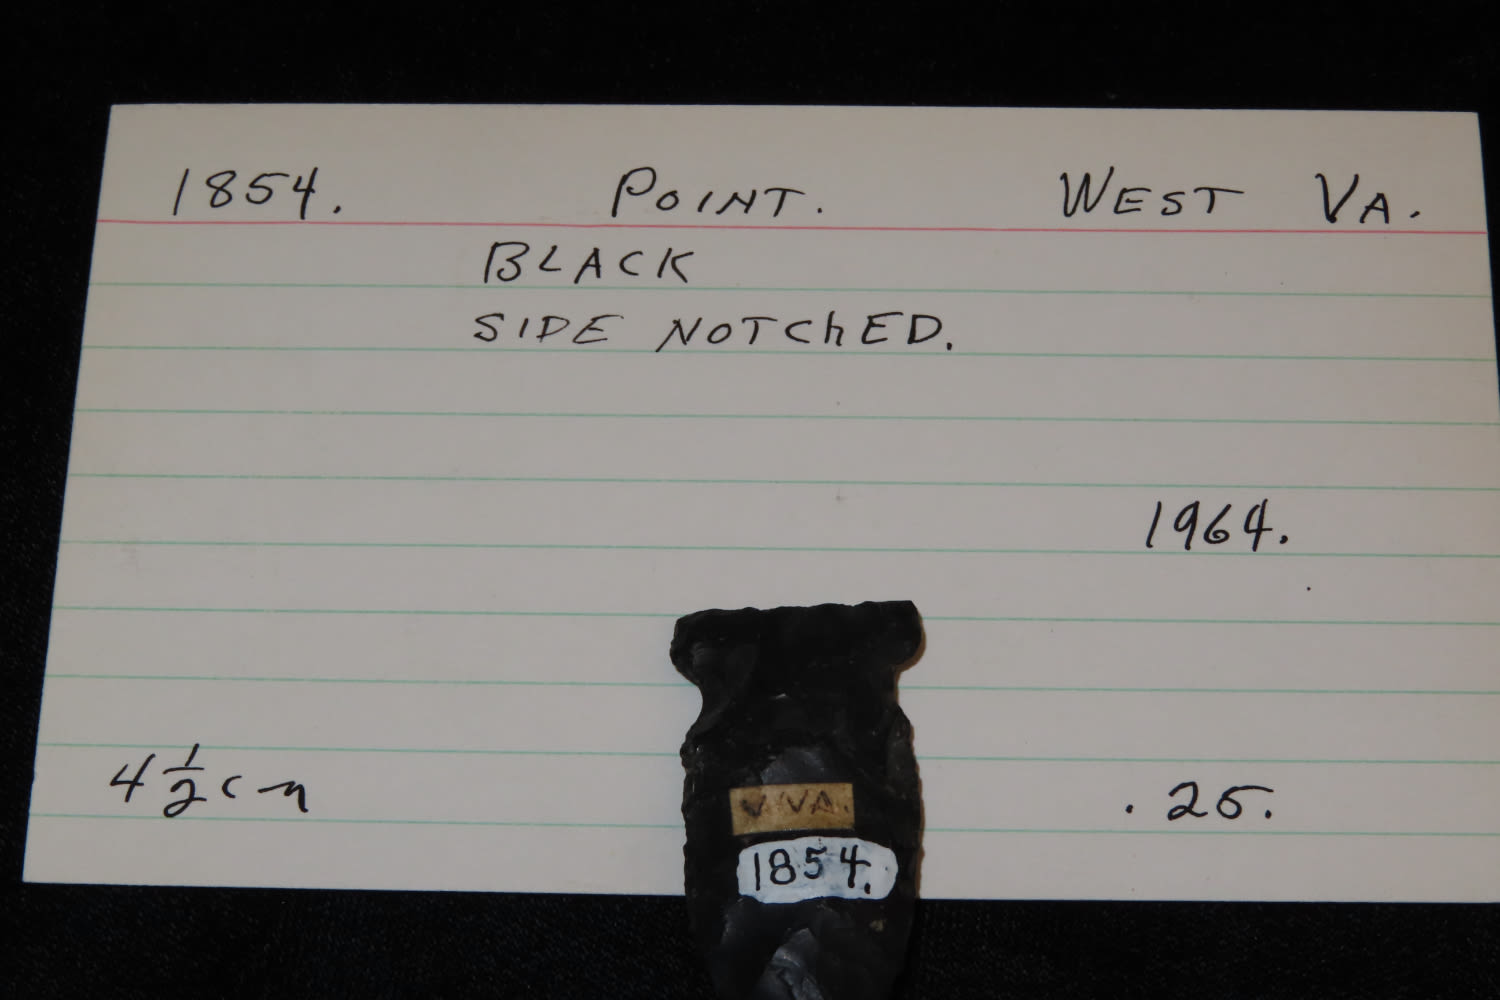 1854. POINT. WEST VA.
BLACK
SIDE NOTChED.
1964.
4 1/2 cm .25.
W.VA.
1854.